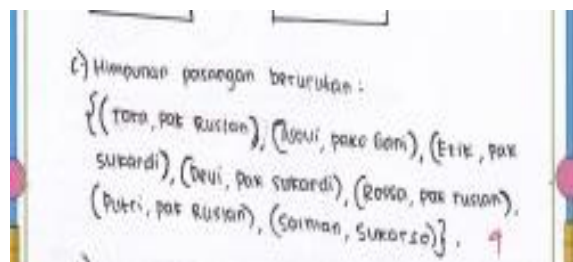 c.) Himpunan pasangan berurutan :
{(Toro, pak Ruslan), (            , pak Gani), (Erik, pak
sukardi), (Dewi, pak sukardi), (Rosso, pak ruslan),
(Putri, pak Ruslan), (Saiman, Sukarso)}. 4